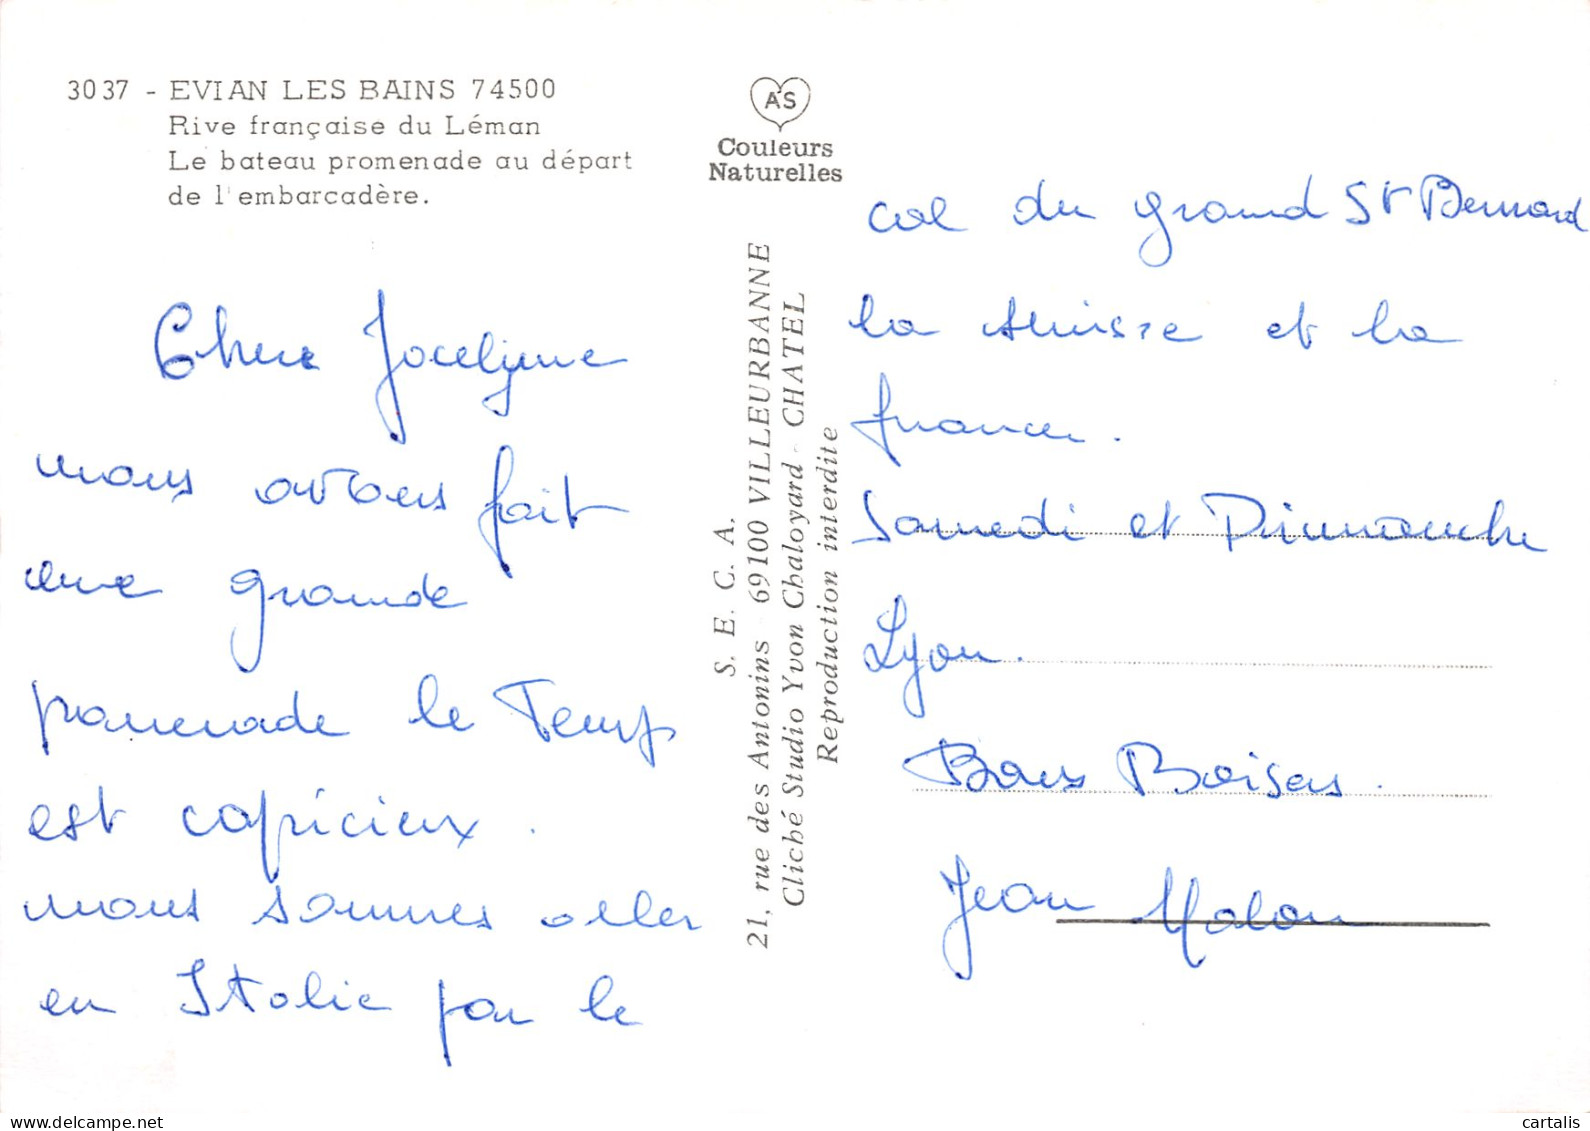 3037 - EVIAN LES BAINS 74500
Rive française du Léman
Le bateau promenade au départ
de l'embarcadère.
AS
Couleurs
Naturelles
Chere Jocelyne
nous avons fait
une grande
promenade le Temps
est capricieux.
nous sommes aller
en Italie par le
S. E. C. A.
21, rue des Antonins 69100 VILLEURBANNE
Cliché Studio Yvon Chaloyard - CHATEL
Reproduction interdite
col du grand St Bernard
la suisse et la
france.
Samedi et Dimmanche
Lyon.
Bons Baisers.
Jean Malou
delcampe.net
cartalis